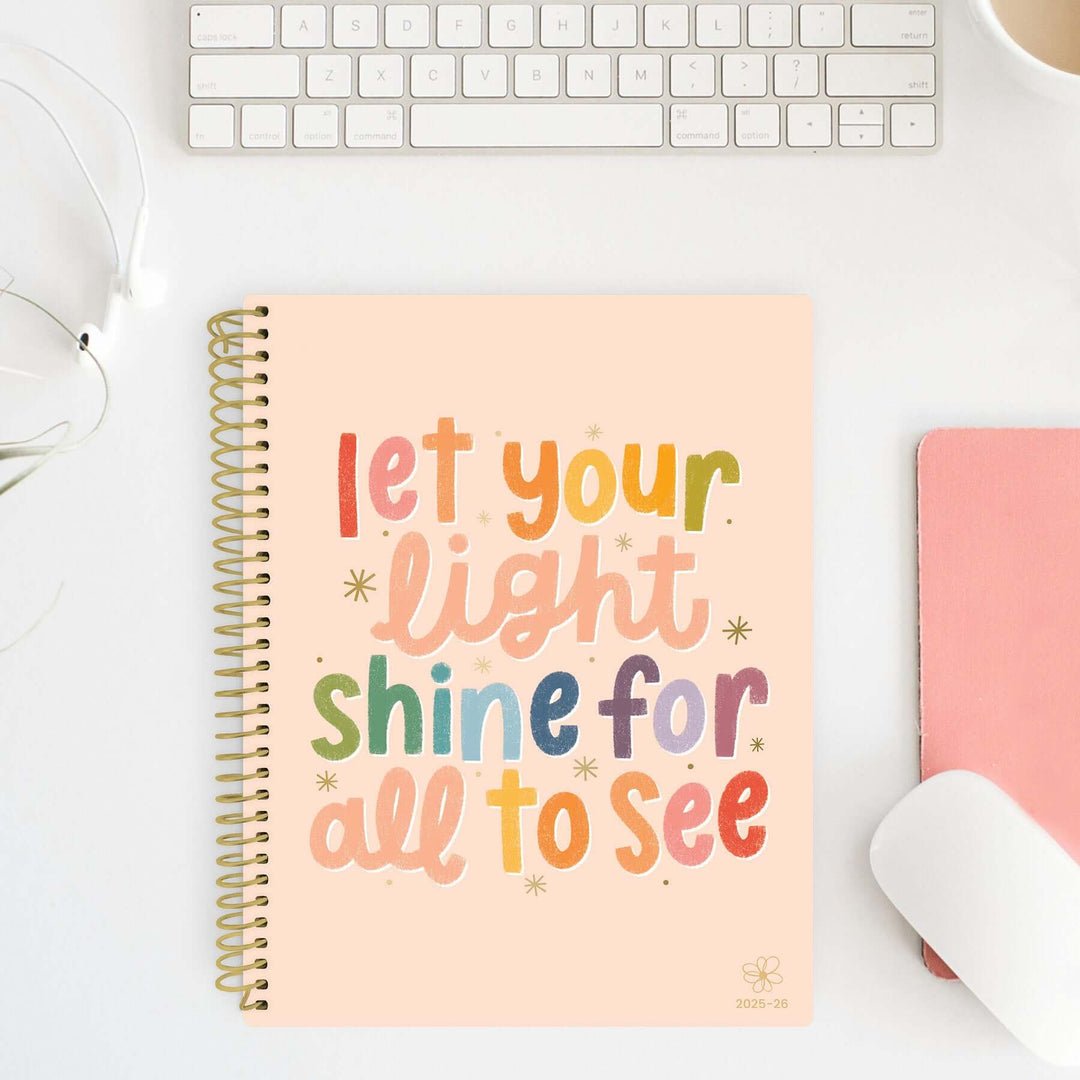 caps lock A S D F G H J K L : ; " ' enter return
shift Z X C V B N M < , > . ? / shift
fn control alt option ⌘ command ⌘ command alt option
let your
light
shine for
all to see
2025-26